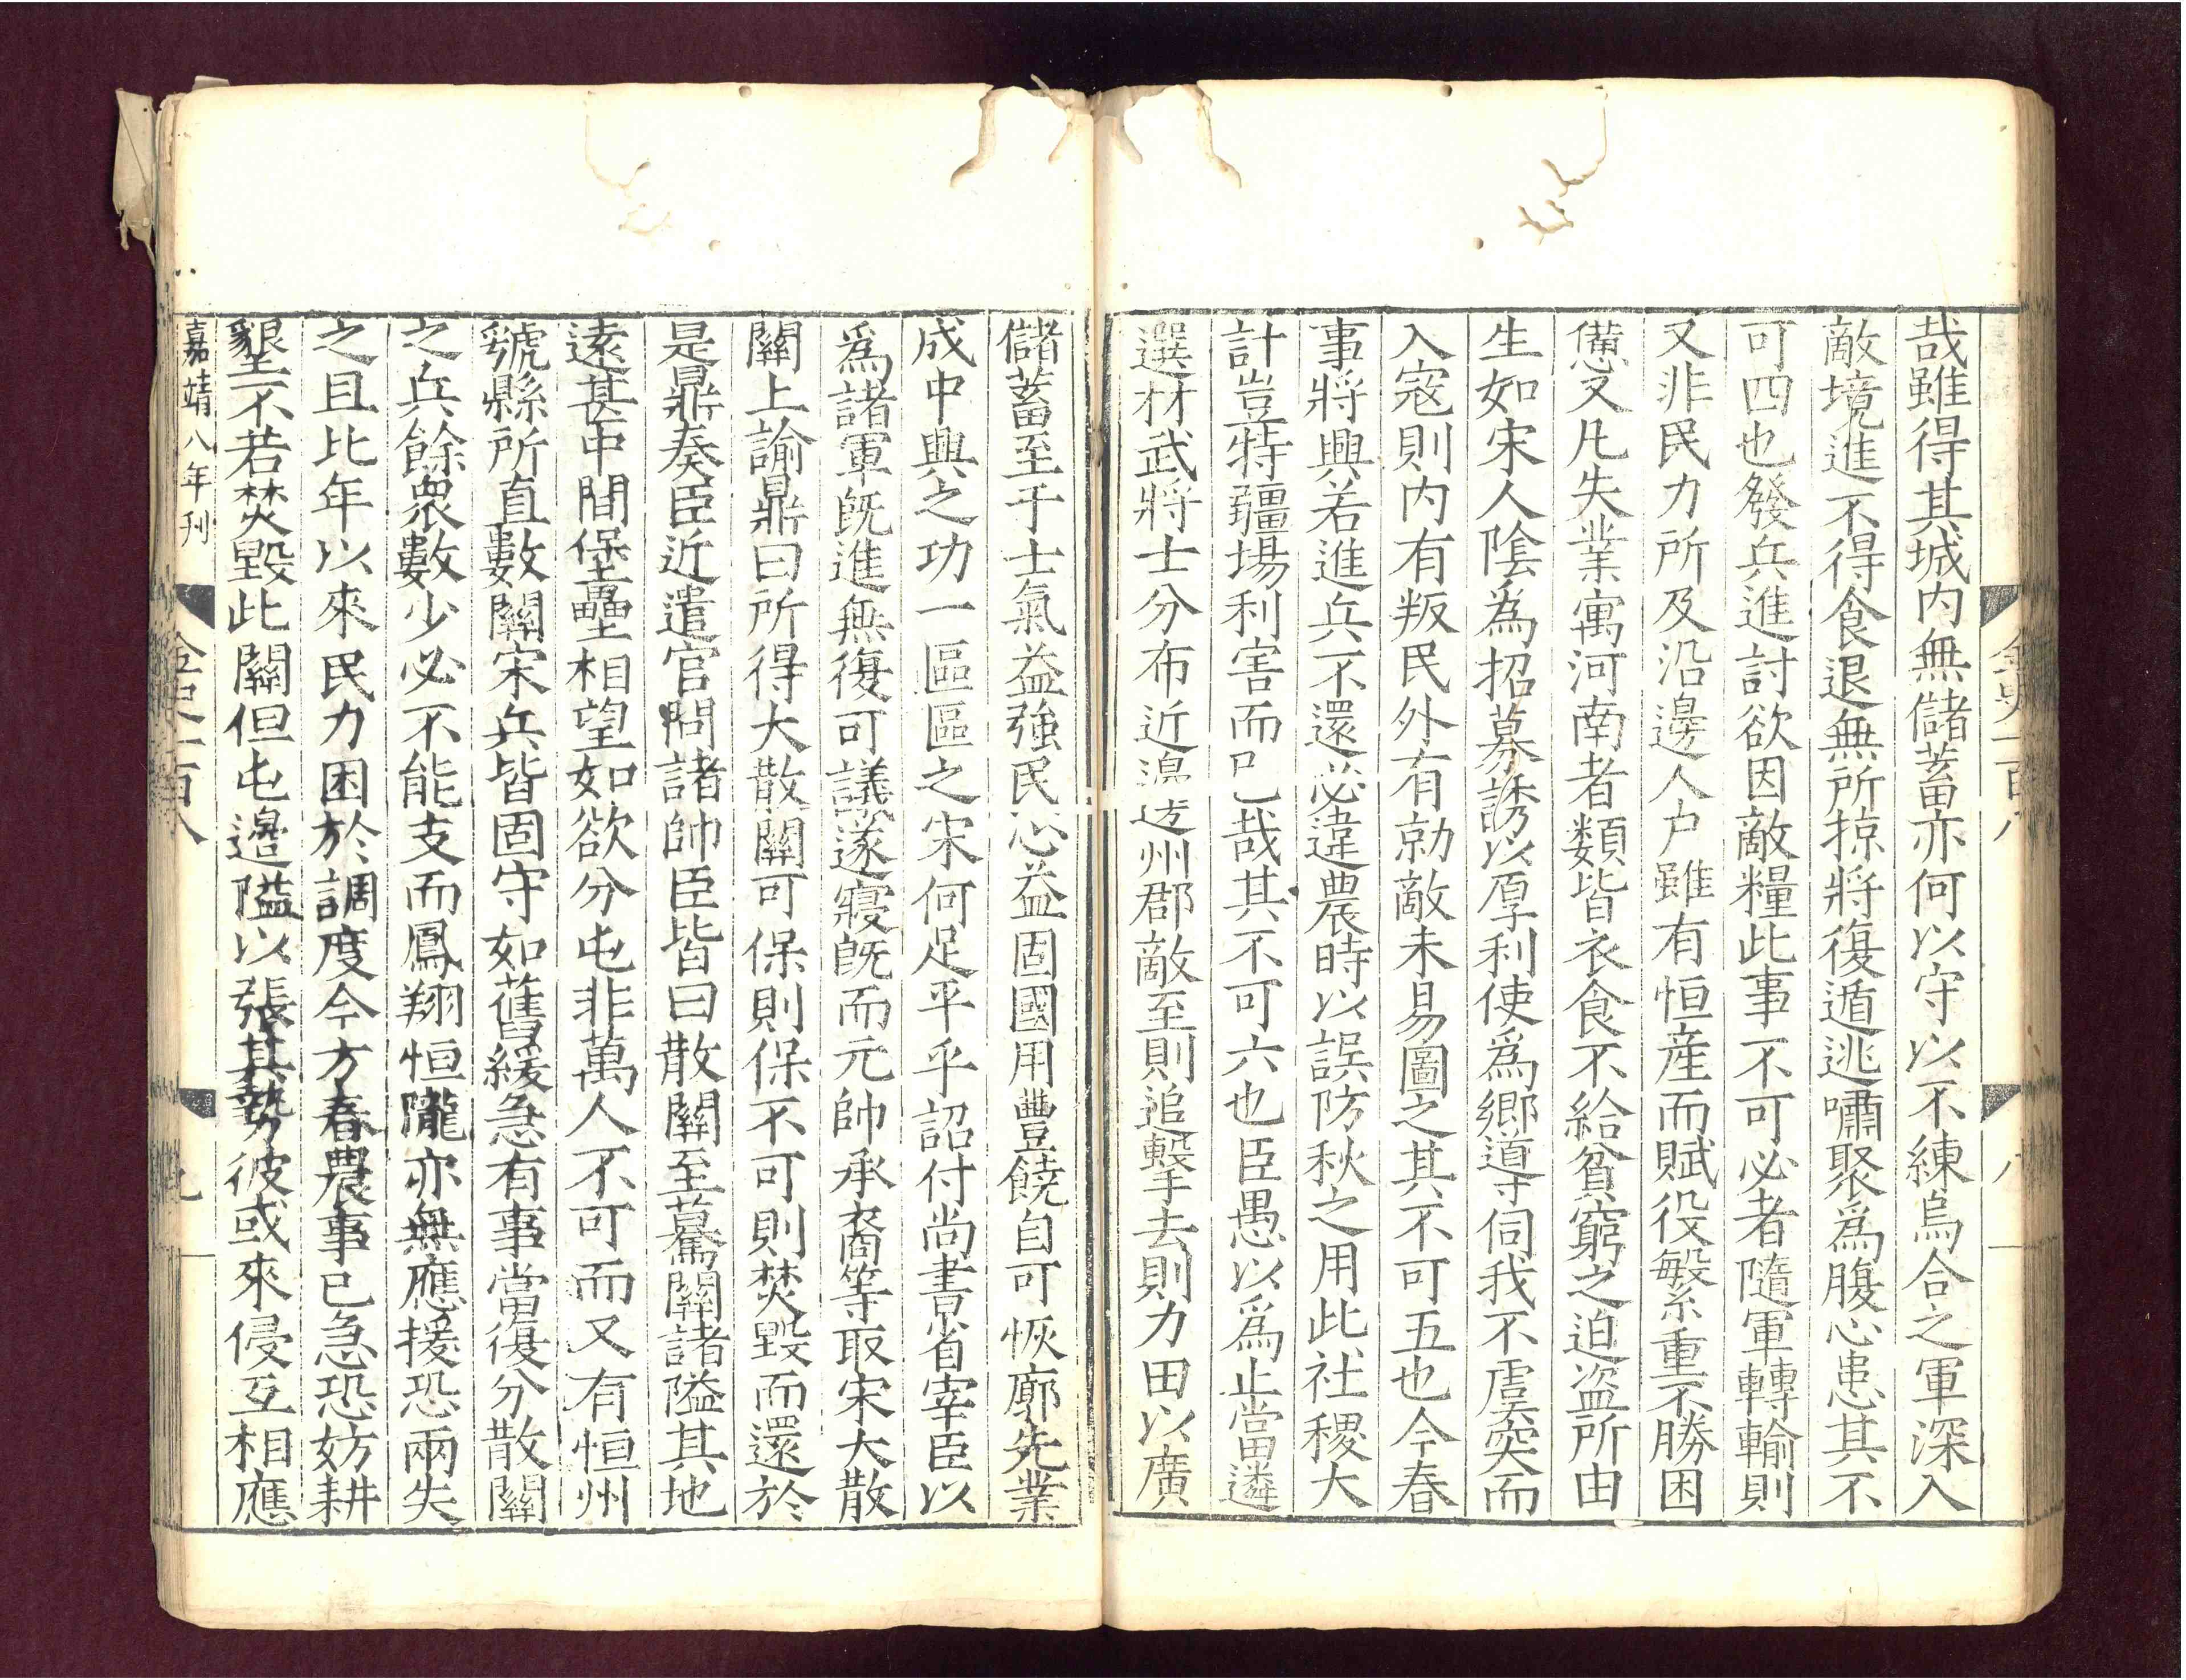 金史一百八
八
哉雖得其城内無儲蓄亦何以守以不練烏合之軍深入
敵境進不得食退無所掠將復遁逃嘯聚爲腹心患其不
可四也發兵進討欲因敵糧此事不可必者隨軍轉輸則
又非民力所及沿邊人户雖有恒産而賦役繁重不勝困
憊又凡失業寓河南者類皆衣食不給貧窮之迫盗所由
生如宋人陰爲招募誘以厚利使爲鄉導伺我不虞突而
入寇則内有叛民外有勍敵未易圖之其不可五也今春
事將興若進兵不還必違農時以誤防秋之用此社稷大
計豈特疆場利害而已哉其不可六也臣愚以爲止當遴
選材武將士分布近邊州郡敵至則追擊去則力田以廣
儲蓄至于士氣益強民心益固國用豊饒自可恢廓先業
成中興之功一區區之宋何足平乎詔付尚書省宰臣以
爲諸軍旣進無復可議遂寢旣而元帥承裔等取宋大散
關上諭鼎曰所得大散關可保則保不可則焚毀而還於
是鼎奏臣近遣官問諸帥臣皆曰散關至驀關諸隘其地
遠甚中間堡壘相望如欲分屯非萬人不可而又有恒州
虢縣所直數關宋兵皆固守如舊緩急有事當復分散關
之兵餘衆數少必不能支而鳳翔恒隴亦無應援恐兩失
之且比年以來民力困於調度今方春農事已急恐妨耕
墾不若焚毀此關但屯邊隘以張其勢彼或來侵互相應
嘉靖八年刊
金史一百八
九